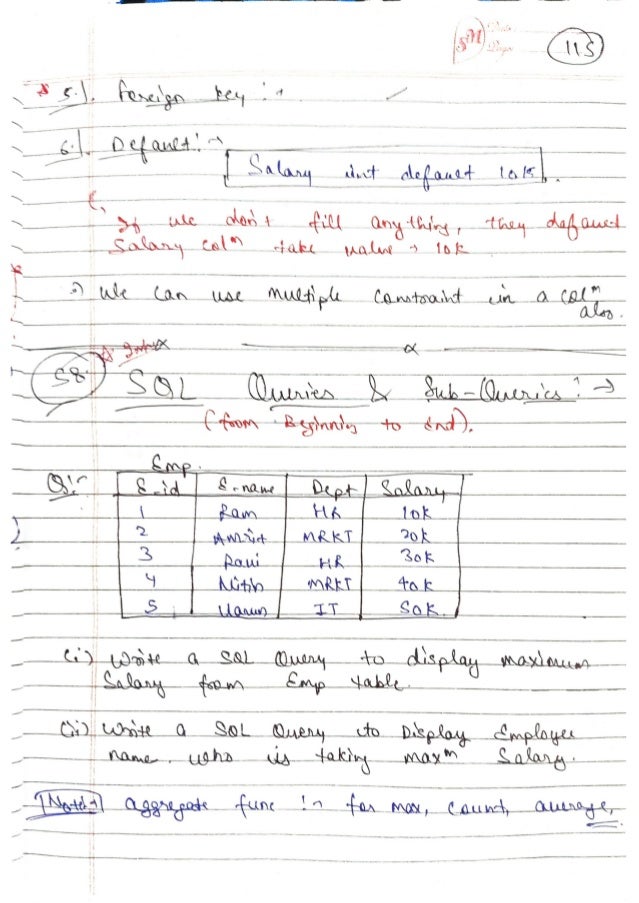 SM Date
Page
115
5.). foreign key :→
6.). Default :→
Salary int default 10k.
If we don't fill anything, they default
Salary colm take value → 10k
→ We can use multiple constraint in a colm
also.
58. SQL Queries & Sub-Queries :→
(from Beginning to End).
Q:→ Emp.
E-id E-name Dept Salary
1 Ram HR 10k
2 Amrit MRKT 20k
3 Ravi HR 30k
4 Nitin MRKT 40k
5 Varun IT 50k.
(i) Write a SQL Query to display maximum
Salary from Emp table.
(ii) Write a SQL Query to Display Employee
name. who is taking maxm Salary.
Note→ aggregate func :→ for max, count, average,